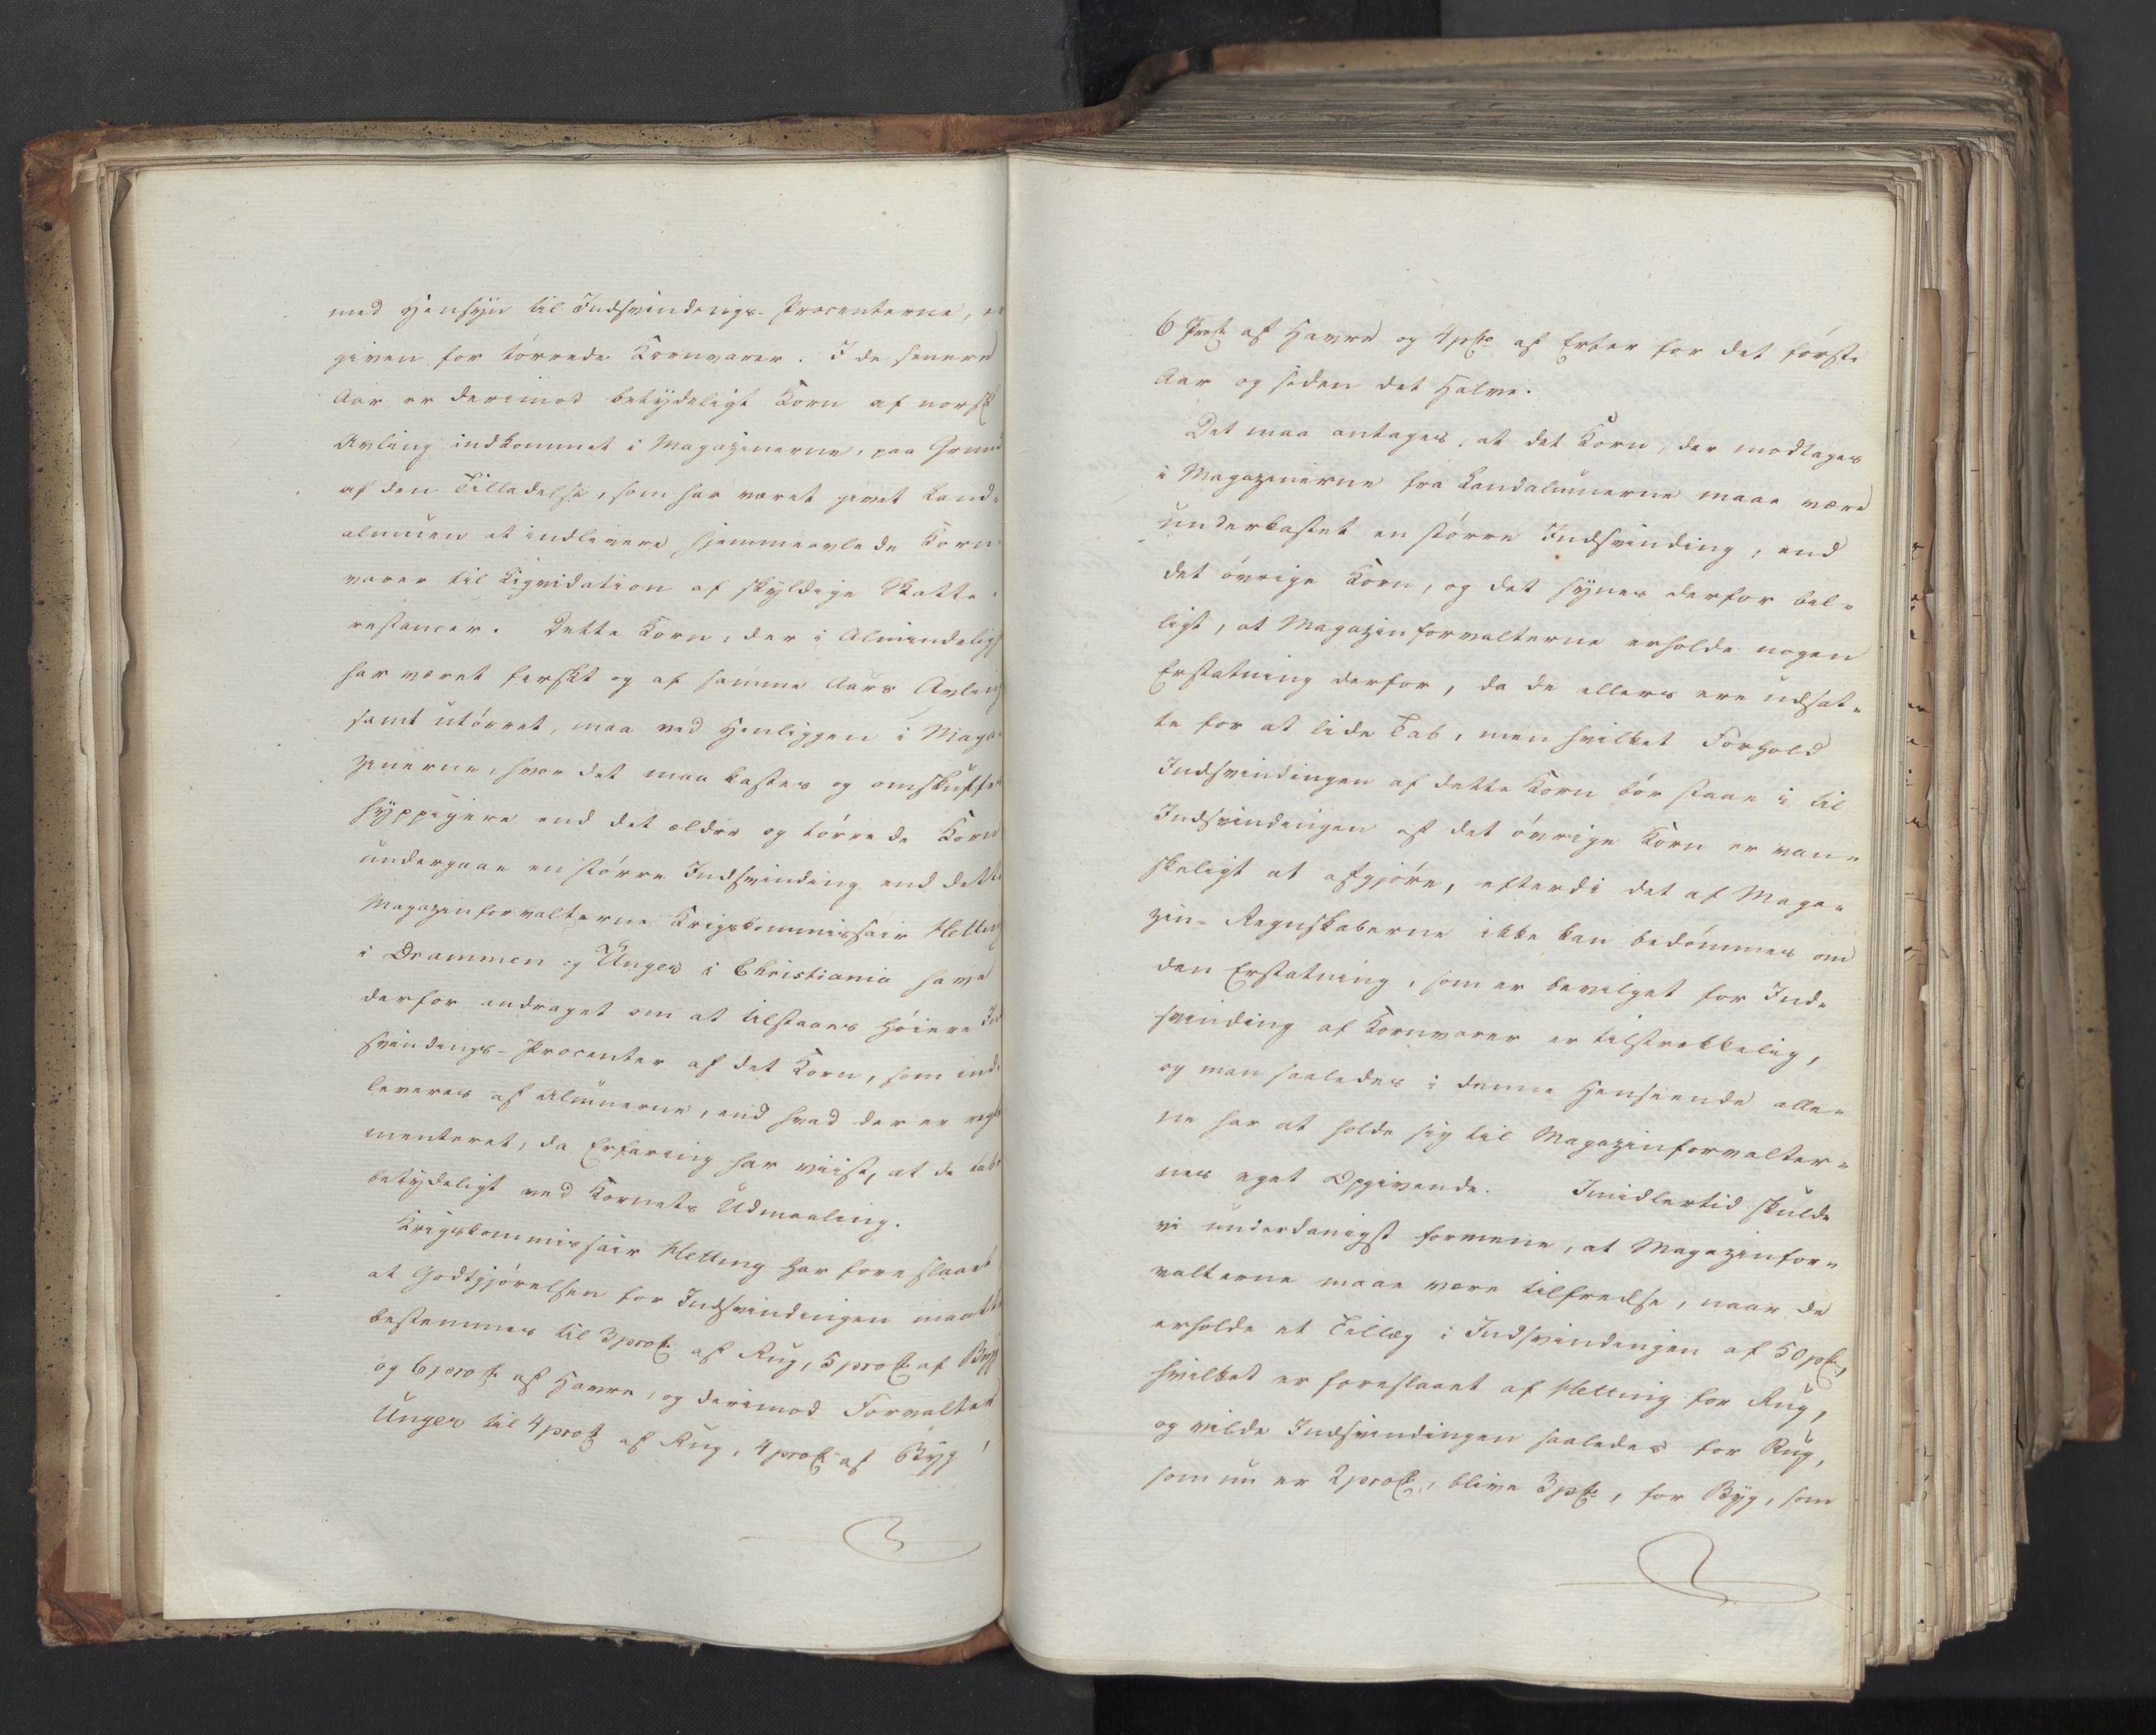 med Hensyn til Indsvindings-Procenterne, er
given for tørrede Kornvarer. I de senere
Aar er derimod betydeligt Korn af norsk
Avling indkommet i Magazinerne, paa Grund
af den Tilladelse, som har været givet Land-
almuen at indlevere hjemmeavlede Korn-
varer til Liqvidation af skyldige Skatte-
restancer. Dette Korn, der i Almindelighed
har været ferskt og af samme Aars Avling
samt utørret, maa ved Henliggen i Maga-
zinerne, hvor det maa kastes og omskuffes
hyppigere end det ældre og tørrede Korn
undergaae en større Indsvinding end dette
Magazinforvalterne Krigskommissair Hetting
i Drammen og Unger i Christiania have
derfor andraget om at tilstaaes høiere Ind
svindings-Procenter af det Korn, som ind-
leveres af Almuerne, end hvad der er regle
menteret, da Erfaring har viist, at de tabe
betydeligt ved Kornets Udmaaling.
Krigskommissair Hetting har foreslaaet
at Godtgjørelsen for Indsvindingen maatte
bestemmes til 3 proCt. af Rug, 5 proCt. af Byg
og 6 proCt. af Havre, og derimod Forvalter
Unger til 4 proCt. af Rug, 4 proCt. af Byg,
6 ProCt. af Havre og 4 pCto. af Erter for det første
Aar og siden det Halve.
Det maa antages, at det Korn, der modtages
i Magazinerne fra Landalmuerne maae være
underkastet en større Indsvinding, end
det øvrige Korn, og det synes derfor bil-
ligt, at Magazinforvalterne erholde nogen
Erstatning derfor, da de ellers ere udsat-
te for at lide Tab, men hvilket Forhold
Indsvindingen af dette Korn bør staae i til
Indsvindingen af det øvrige Korn er van-
skeligt at afgjøre, efterdi det af Maga-
zin-Regnskaberne ikke kan bedømmes om
den Erstatning, som er bevilget for Ind-
svinding af Kornvarer er tilstrækkelig,
og man saaledes i denne Henseende alle-
ne har at holde sig til Magazinforvalter-
nes eget Opgivende. Imidlertid skulde
vi underdanigst formene, at Magazinfor-
valterne maae være tilfredse, naar de
erholde et Tillæg i Indsvindingen af 50 pCt.,
hvilket er foreslaaet af Hetting for Rug,
og vilde Indsvindingen saaledes for Rug,
som nu er 2 proCt., blive 3 pCt., for Byg, som